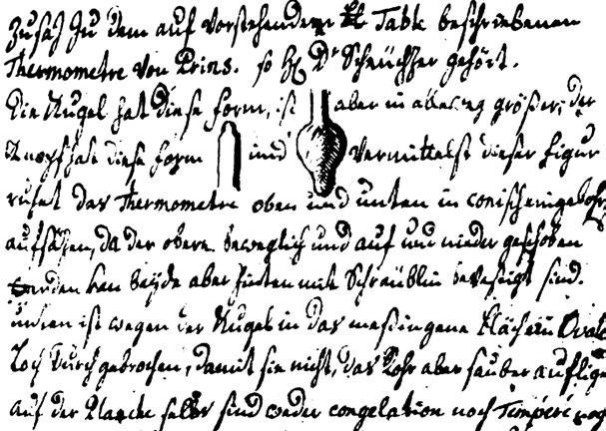 Zusaz zu dem auf vorstehender Tabb beschriebenen
Thermometre von Prins. so H. Dr Scheüchzer gehört.
Die Kugel hat diese form, ist aber in allweg größer; der
Knopf hat diese form und vermittelst dieser figur
ruhet das Thermometre oben und unten in conisch eingebohrt
aufsäzen, da der obere beweglich und auf und nieder geschoben
werden kan beÿde aber hinten mit Schräublin bevestigt sind.
unten ist wegen der Kugel in das meßingene Blächlin Oval
Loch durchgebrochen, damit sie nicht, das Rohr aber sauber auflige
auf der Placke selbs sind weder congelation noch Temperé